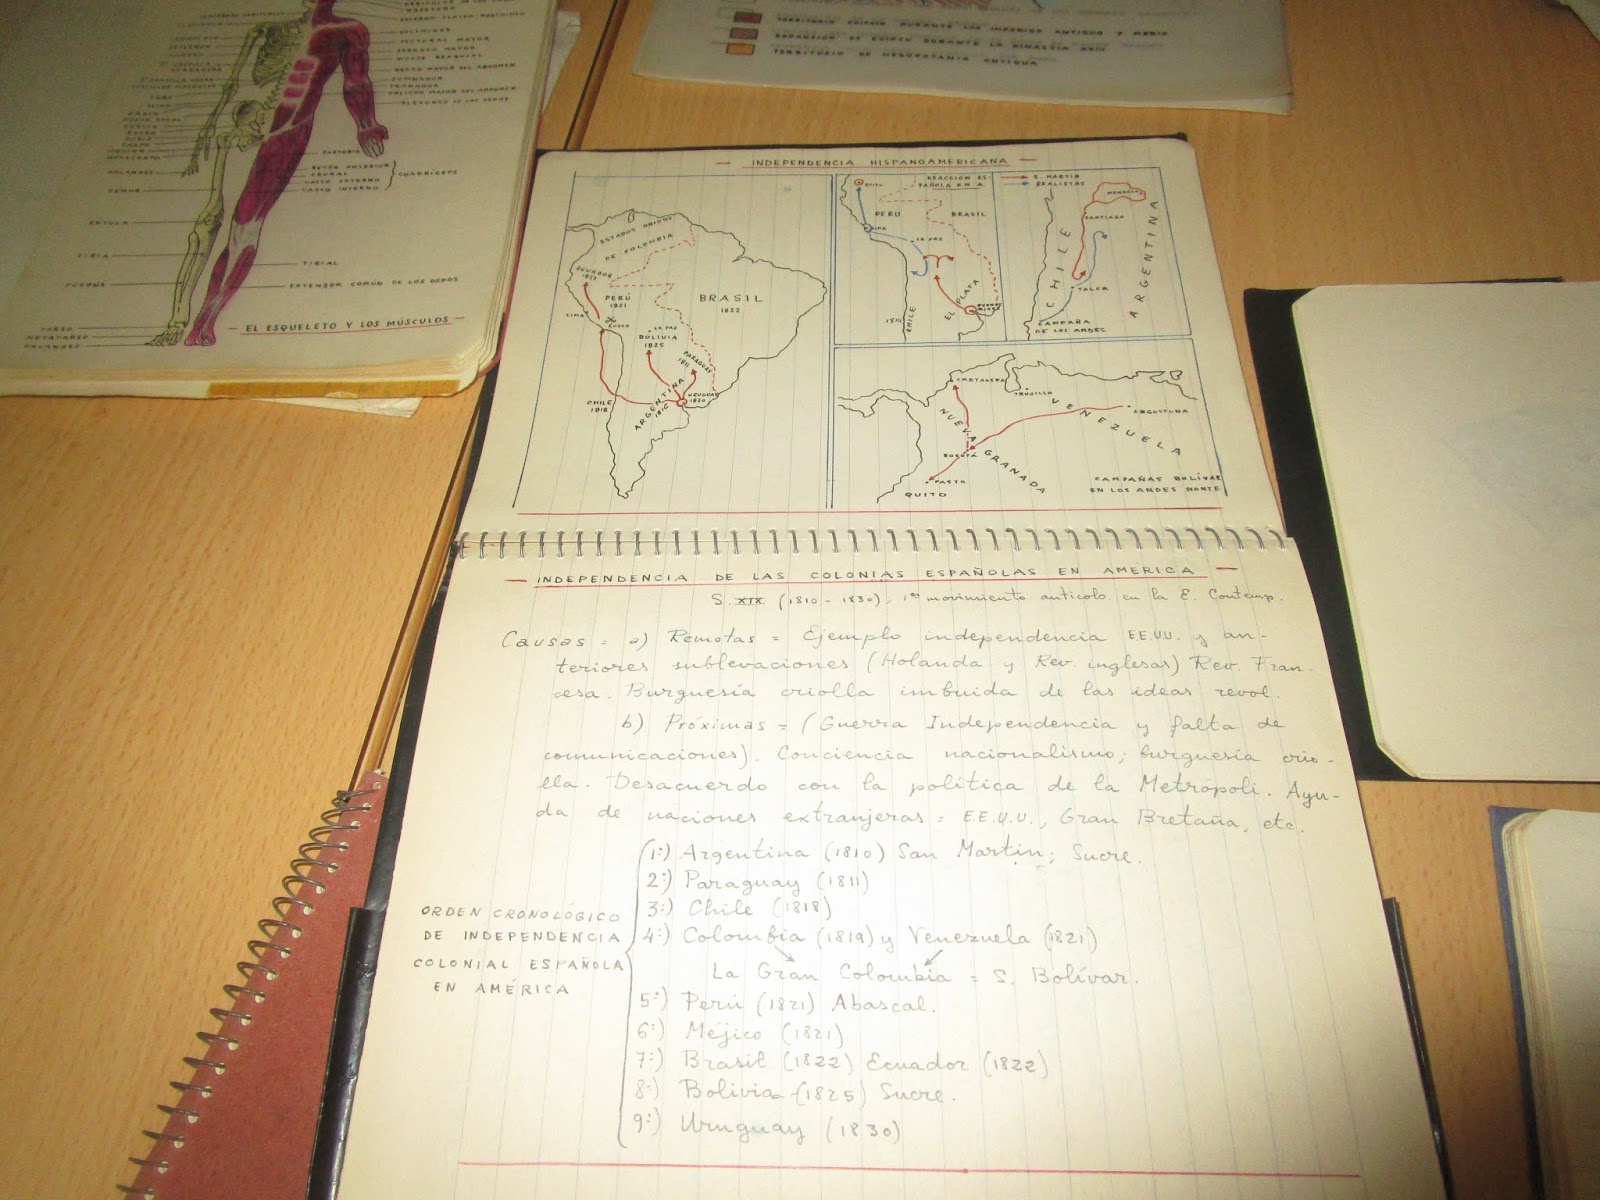 TERRITORIO EGIPCIO DURANTE LOS IMPERIOS ANTIGUO Y MEDIO
EXPANSIÓN DE EGIPTO DURANTE LA DINASTÍA XVIII
TERRITORIO DE MESOPOTAMIA ANTIGUA
DELTOIDES
PECTORAL MAYOR
SERRATO MAYOR
BICEPS BRAQUIAL
RECTO MAYOR DEL ABDOMEN
SUPINADOR
PRONADOR
OBLICUO MAYOR DEL ABDOMEN
FLEXORES DE LOS DEDOS
SARTORIO
RECTO ANTERIOR
CRURAL
VASTO EXTERNO
VASTO INTERNO
CUADRICEPS
FALANGES
FEMUR
ROTULA
TIBIA
PERONE
TIBIAL
EXTENSOR COMÚN DE LOS DEDOS
TARSO
METATARSO
FALANGES
— EL ESQUELETO Y LOS MÚSCULOS —
— INDEPENDENCIA HISPANOAMERICANA —
ESTADOS UNIDOS
DE COLOMBIA
ECUADOR
1822
PERÚ
1821
BRASIL
1822
LIMA
CUZCO
LA PAZ
BOLIVIA
1825
PARAGUAY
1811
CHILE
1818
ARGENTINA
1816
URUGUAY
1830
REACCION ES-
PAÑOLA EN A.
QUITO
PERU
BRASIL
LIMA
LA PAZ
EL PLATA
CHILE
S. MARTIN
REALISTAS
MENDOZA
SANTIAGO
CHILE
ARGENTINA
TALCA
CAMPAÑA
DE LOS ANDES
CARTAGENA
TRUJILLO
VENEZUELA
ANGOSTURA
NUEVA
GRANADA
BOGOTÁ
PASTO
QUITO
CAMPAÑAS BOLÍVAR
EN LOS ANDES NORTE
— INDEPENDENCIA DE LAS COLONIAS ESPAÑOLAS EN AMERICA —
S. XIX (1810 - 1830), 1er movimiento anticolo. en la E. Contemp.
Causas = a) Remotas = Ejemplo independencia EE.UU. y an-
teriores sublevaciones (Holanda y Rev. inglesas) Rev. Fran-
cesa. Burguesía criolla imbuida de las ideas revol.
b) Próximas = (Guerra Independencia y falta de
comunicaciones). Conciencia nacionalismo; burguesía crio-
lla. Desacuerdo con la política de la Metrópoli. Ayu-
da de naciones extranjeras = EE.UU., Gran Bretaña, etc.
ORDEN CRONOLÓGICO
DE INDEPENDENCIA
COLONIAL ESPAÑOLA
EN AMÉRICA
1º) Argentina (1810) San Martín; Sucre.
2º) Paraguay (1811)
3º) Chile (1818)
4º) Colombia (1819) y Venezuela (1821)
La Gran Colombia = S. Bolívar.
5º) Perú (1821) Abascal.
6º) Méjico (1821)
7º) Brasil (1822) Ecuador (1822)
8º) Bolivia (1825) Sucre.
9º) Uruguay (1830)